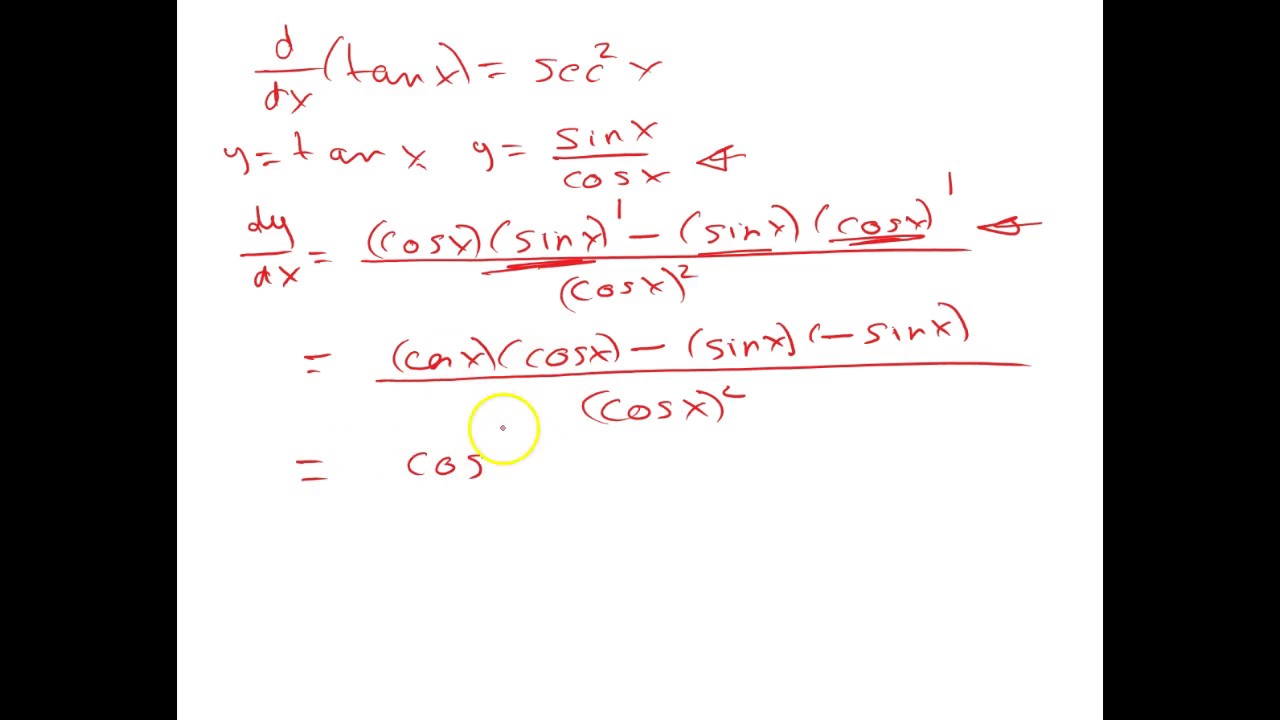 d/dx (tan x) = sec² x
y = tan x  y = sin x / cos x ⇐
dy/dx = ((cos x)(sin x)' − (sin x)(cos x)') / (cos x)² ⇐
= ((cos x)(cos x) − (sin x)(− sin x)) / (cos x)²
= cos